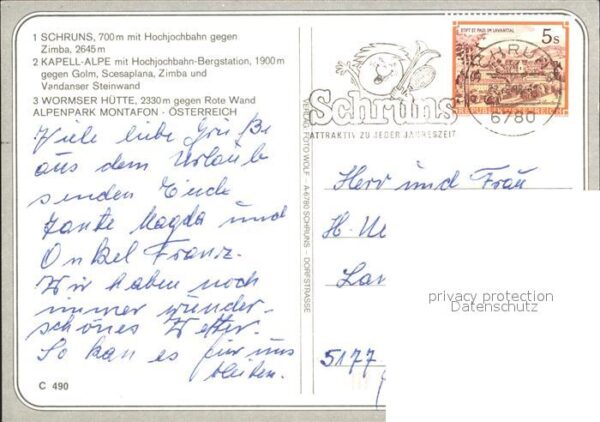 1 SCHRUNS, 700 m mit Hochjochbahn gegen
Zimba, 2645 m
2 KAPELL-ALPE mit Hochjochbahn-Bergstation, 1900 m
gegen Golm, Scesaplana, Zimba und
Vandanser Steinwand
3 WORMSER HÜTTE, 2330 m gegen Rote Wand
ALPENPARK MONTAFON - ÖSTERREICH
Viele liebe Grüße
aus dem Urlaub
senden Euch
Tante Magda und
Onkel Franz.
Wir haben noch
immer wunder-
schönes Wetter.
So kan es für uns
bleiben.
C 490
VERLAG FOTO WOLF - A-6780 SCHRUNS - DORFSTRASSE
Schruns
ATTRAKTIV ZU JEDER JAHRESZEIT
STIFT ST. PAUL IM LAVANTTAL
5 S
REPUBLIK ÖSTERREICH
SCHRUNS
6780
Herr und Frau
H-
5177
privacy protection
Datenschutz